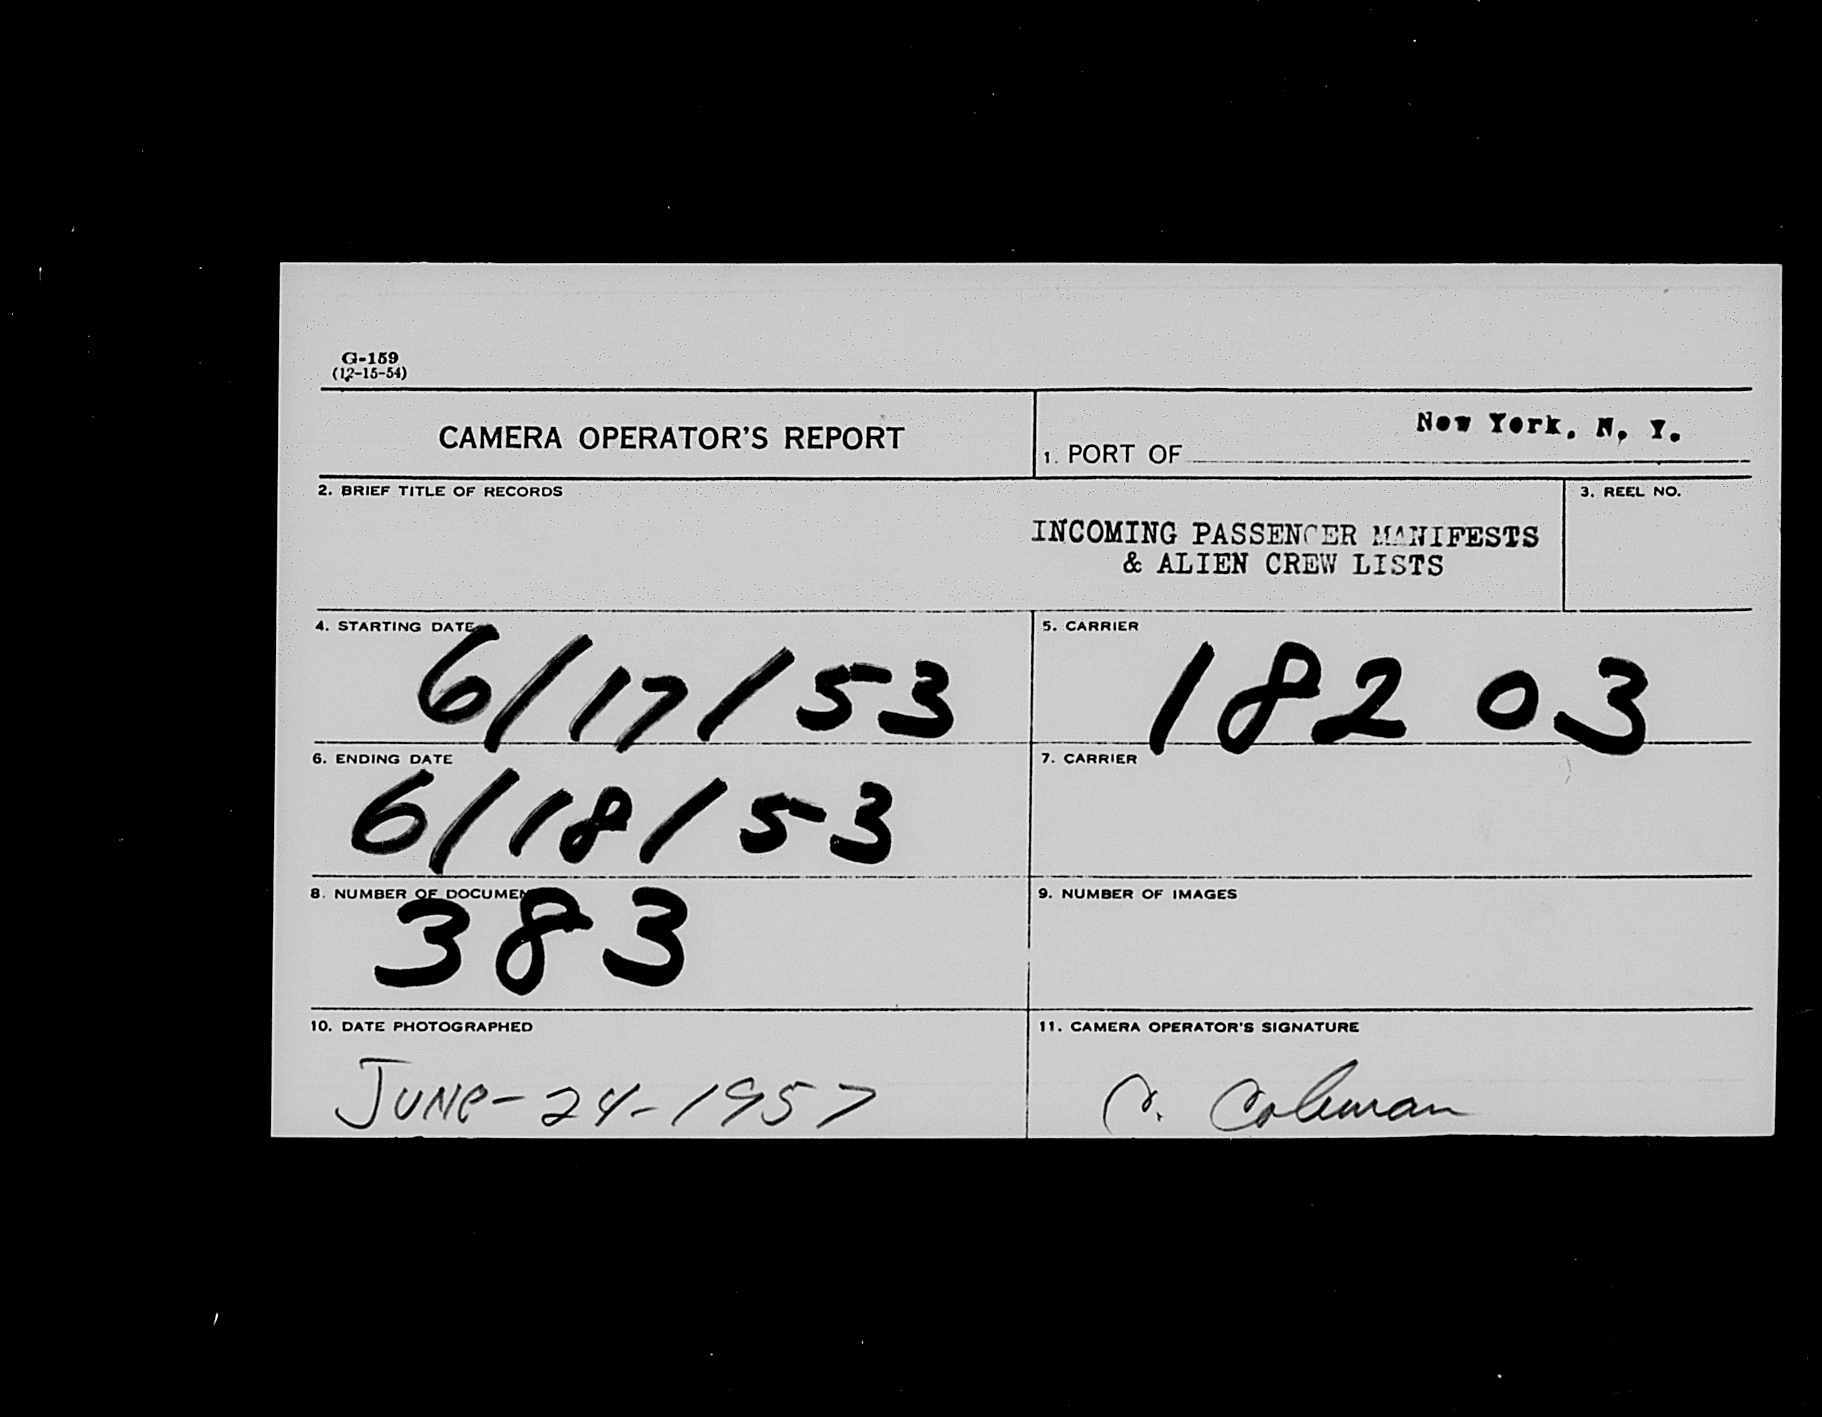 G-159
(12-15-54)
CAMERA OPERATOR'S REPORT
1. PORT OF New York, N. Y.
2. BRIEF TITLE OF RECORDS
INCOMING PASSENGER MANIFESTS
& ALIEN CREW LISTS
3. REEL NO.
4. STARTING DATE
6/17/53
5. CARRIER
182 03
6. ENDING DATE
6/18/53
7. CARRIER
8. NUMBER OF DOCUMEN
383
9. NUMBER OF IMAGES
10. DATE PHOTOGRAPHED
JUNe-24-1957
11. CAMERA OPERATOR'S SIGNATURE
Coleman